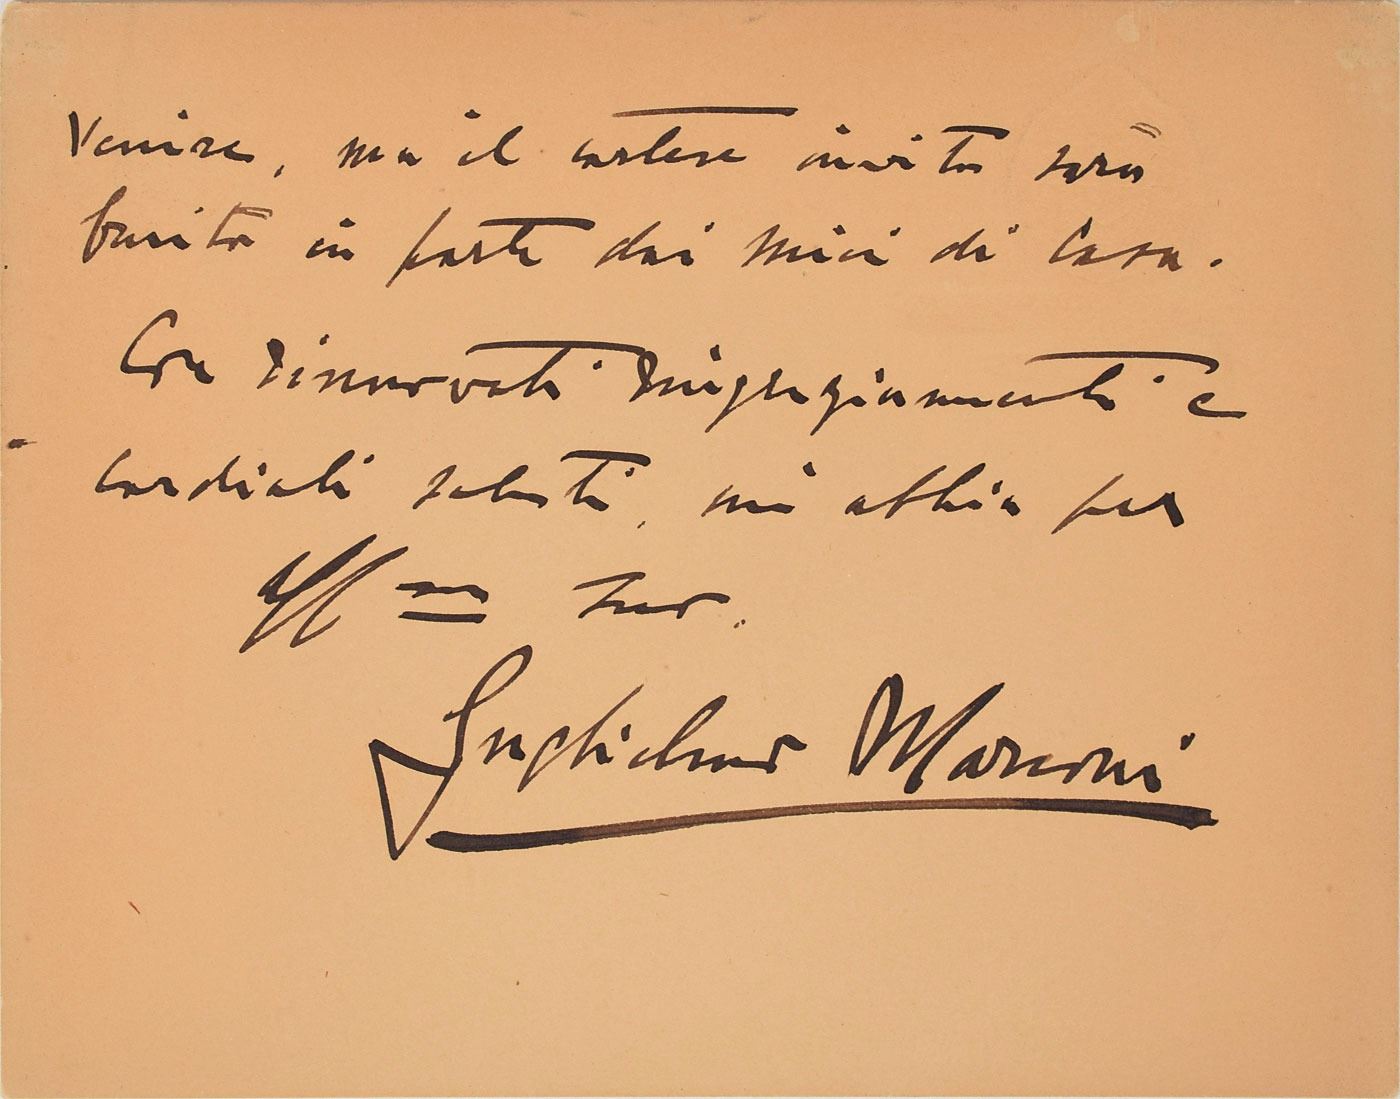 venire, ma il cortese invito sarà
fruito in parte dai miei di casa.
Con rinnovati ringraziamenti e
cordiali saluti, mi abbia per
Aff mo suo.
Guglielmo Marconi